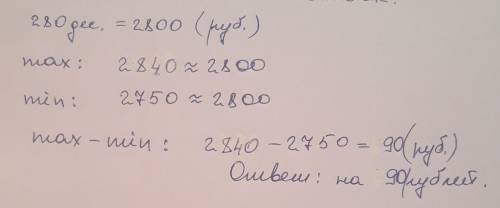 280 дес. = 2800 (руб.)
max: 2840 ≈ 2800
min: 2750 ≈ 2800
max - min: 2840 - 2750 = 90(руб.)
Ответ: на 90рублей.